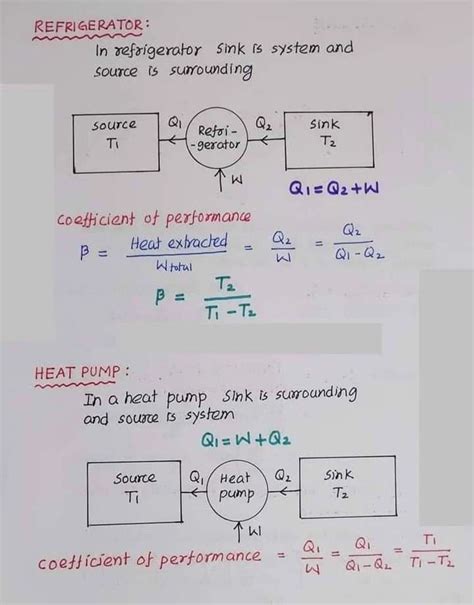 REFRIGERATOR:
In refrigerator sink is system and
source is surrounding
Source
T1
Q1
Refri-
-gerator
Q2
Sink
T2
W
Q1=Q2+W
coefficient of performance
β = Heat extracted / Wtotal = Q2 / W = Q2 / Q1-Q2
β = T2 / T1-T2
HEAT PUMP:
In a heat pump sink is surrounding
and source is system
Q1=W+Q2
Source
T1
Q1
Heat
pump
Q2
Sink
T2
W
coefficient of performance = Q1 / W = Q1 / Q1-Q2 = T1 / T1-T2